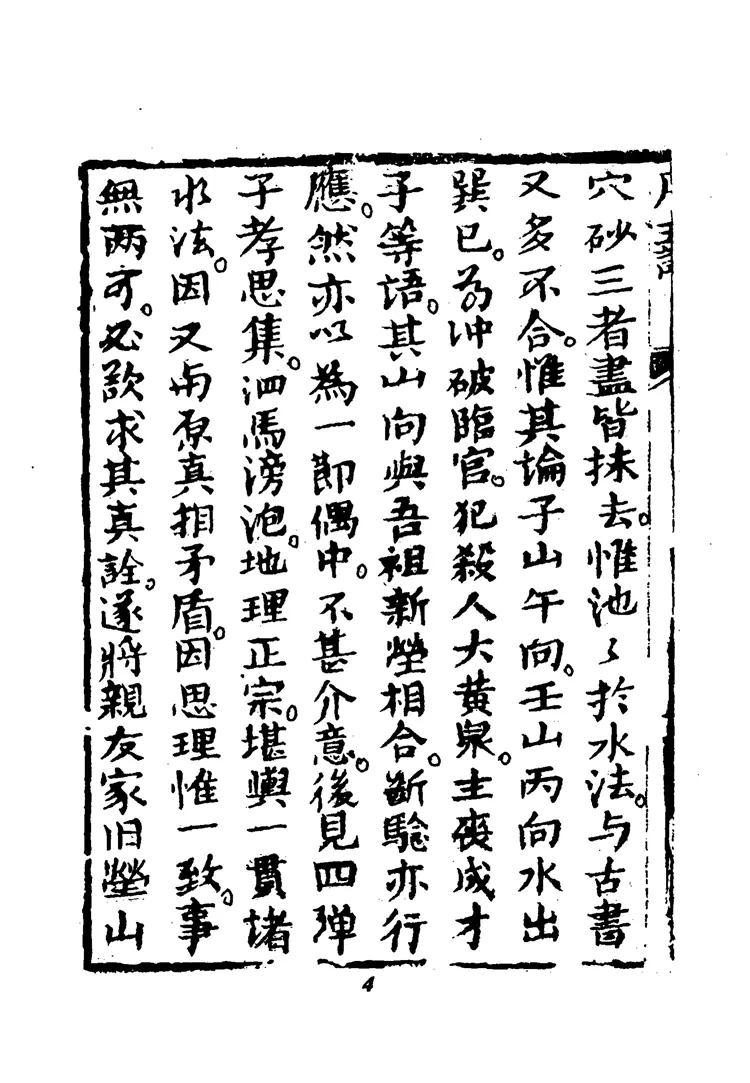 穴砂三者盡皆抹去。惟池々扵水法。与古書
又多不合。惟其論子山午向。壬山丙向水出
巽巳。為冲破臨官。犯殺人大黄泉。主喪成才
子等語。其山向與吾祖新塋相合。斷騐亦行
應。然亦以為一節偶中。不甚介意。後見四弹
子孝思集。泗馬滂沲。地理正宗。堪輿一貫堵
水法。因又与原真相矛盾。因思理惟一致。事
無两可。必欲求其真詮。遂將親友家旧塋山
4